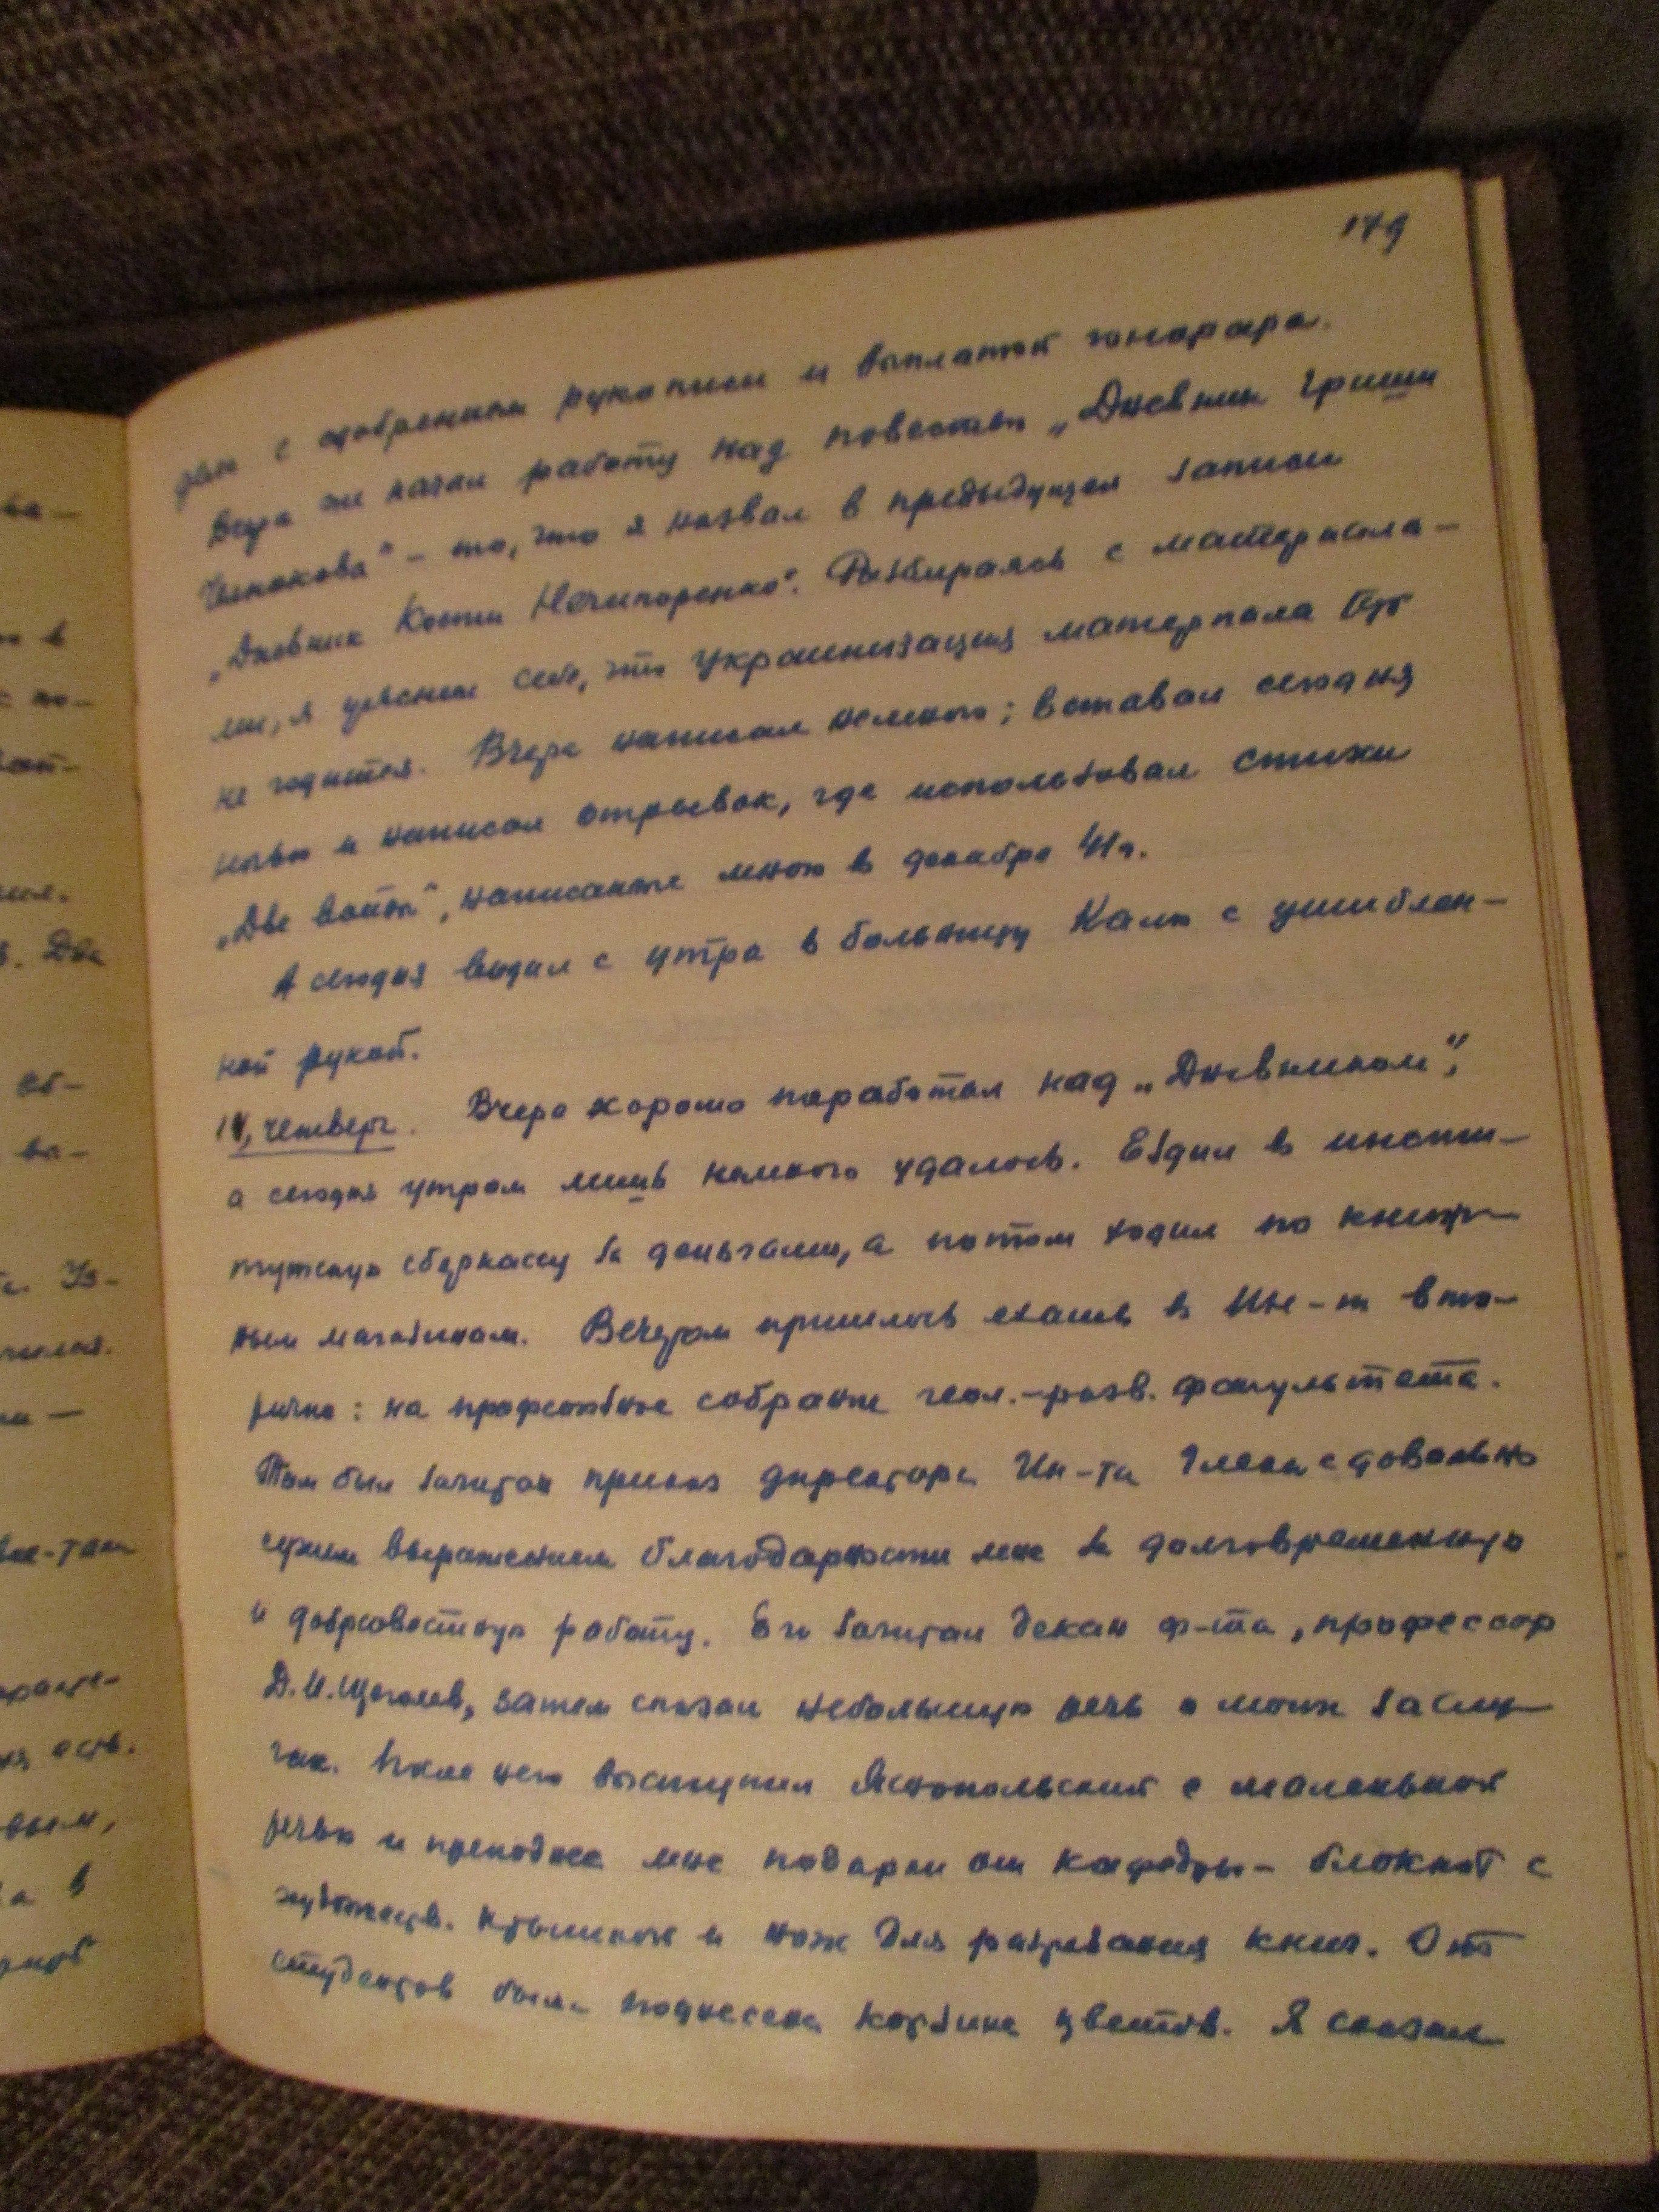 179
с одобрением рукописи и выплатой гонорара.
Вчера же начал работу над повестью „Дневник Гриши
Челнокова" – то, что я назвал в предыдущей записи
„Дневник Кости Нечипоренко". Разбираясь с материала-
ми, я уяснил себе, что украинизация материала тут
не годится. Вчера написал немного; вставал сегодня
ночью и написал отрывок, где использовал стихи
„Две войны", написанные мною в декабре 41 г.
А сегодня водил с утра в больницу Калю с ушиблен-
ной рукой.
14, четверг. Вчера хорошо поработал над „Дневником",
а сегодня утром лишь немного удалось. Ездил в инсти-
тутскую сберкассу за деньгами, а потом ходил по книж-
ным магазинам. Вечером пришлось ехать в Ин-т вто-
рично: на профсоюзное собрание геол.-разв. факультета.
Там был зачитан приказ директора Ин-та с довольно
сухим выражением благодарности мне за долговременную
и добросовестную работу. Его зачитал декан ф-та, профессор
Д.И. Щеголев, затем сказал небольшую речь о моих заслу-
гах. После него выступил Яснопольский с маленькой
речью и преподнес мне подарки от кафедры – блокнот с
художеств. крышкой и нож для разрезания книг. От
студентов была поднесена корзина цветов. Я сказал